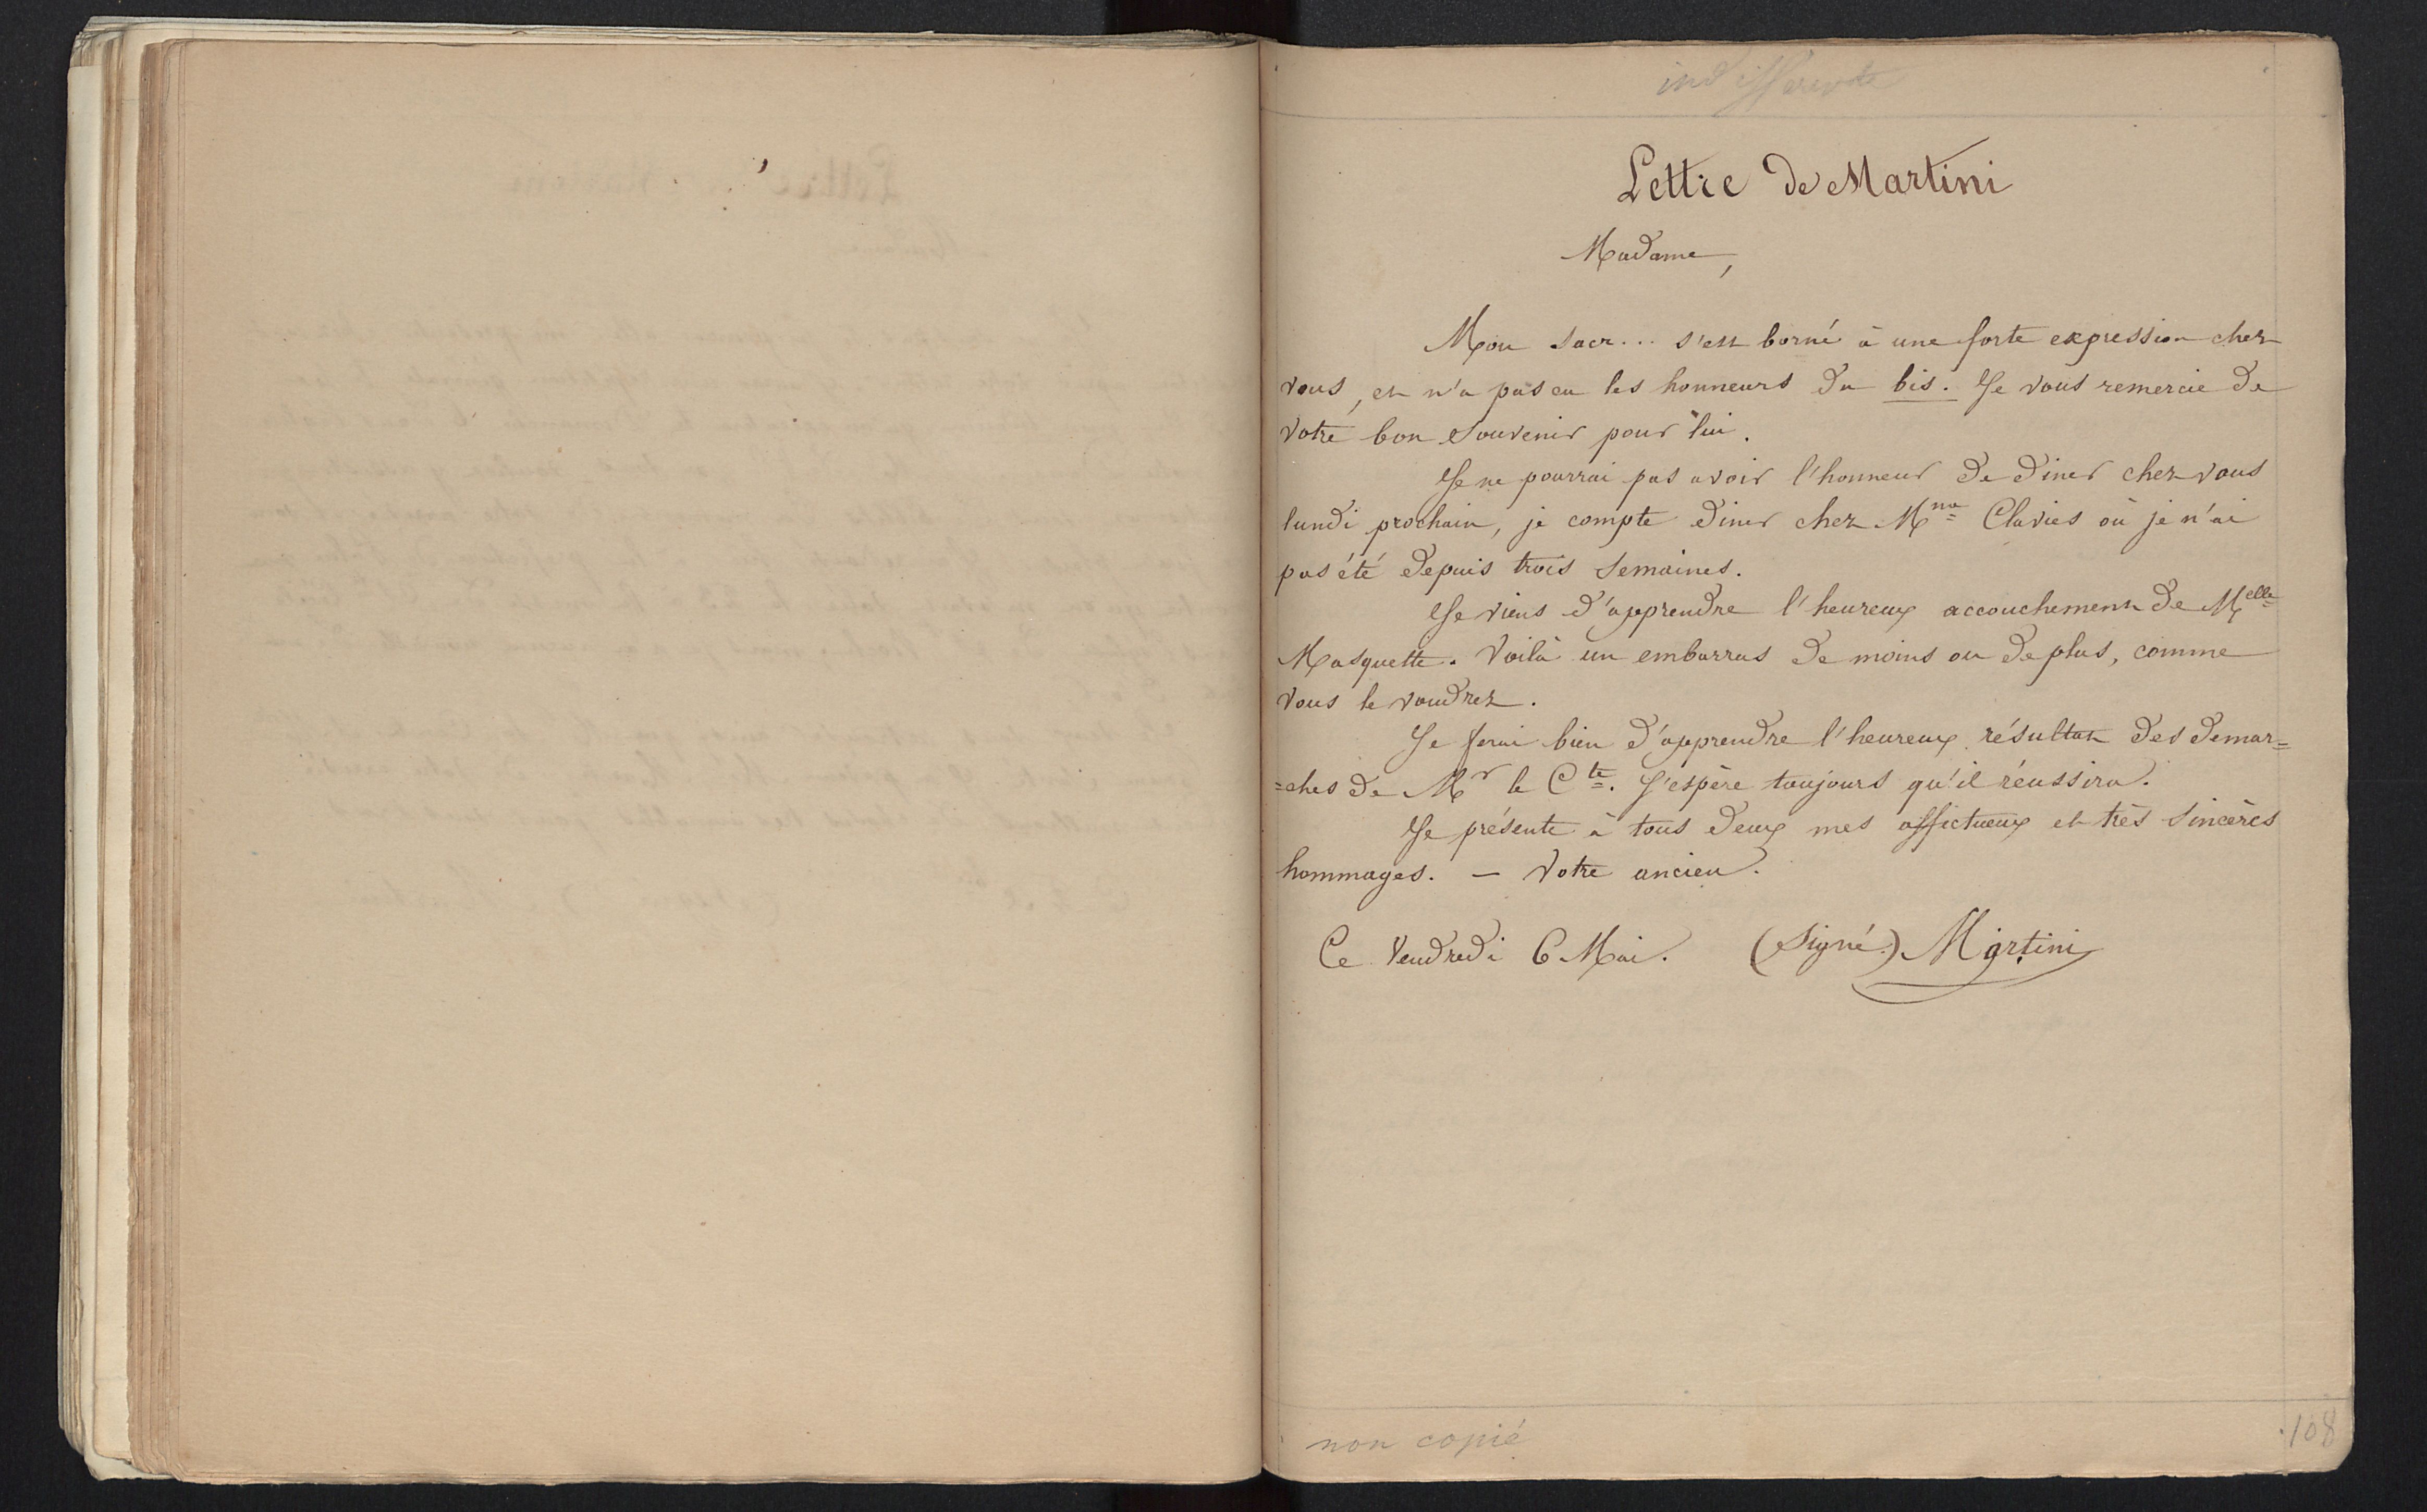 indifférente
Lettre de Martini
Madame,
Mon sacr... s'est borné à une forte expression chez
vous, et n'a pas eu les honneurs du bis. Je vous remercie de
votre bon souvenir pour lui.
Je ne pourrai pas avoir l'honneur de diner chez vous
lundi prochain, je compte diner chez Mme Claviés où je n'ai
pas été depuis trois semaines.
Je viens d'apprendre l'heureux accouchement de Melle
Masquette. Voilà un embarras de moins ou de plus, comme
vous le voudrez.
Je serai bien d'apprendre l'heureux résultat des demar=
=ches de Mr le Cte. J'espère toujours qu'il réussira.
Je présente à tous deux mes affectueux et très sincères
hommages. — Votre ancien.
Ce Vendredi 6 Mai. (Signé) Martini
non copié
108